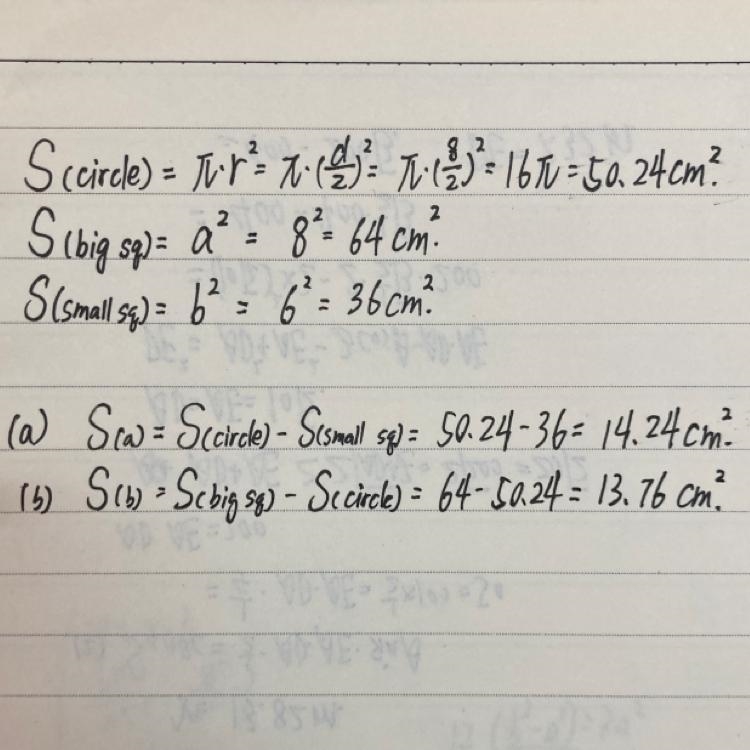 S(circle) = π·r² = π·(d/2)² = π·(8/2)² = 16π = 50.24cm².
S(big sq) = a² = 8² = 64 cm².
S(small sq) = b² = 6² = 36cm².
(a) S(a) = S(circle) - S(small sq) = 50.24 - 36 = 14.24cm².
(b) S(b) = S(big sq) - S(circle) = 64 - 50.24 = 13.76 cm².